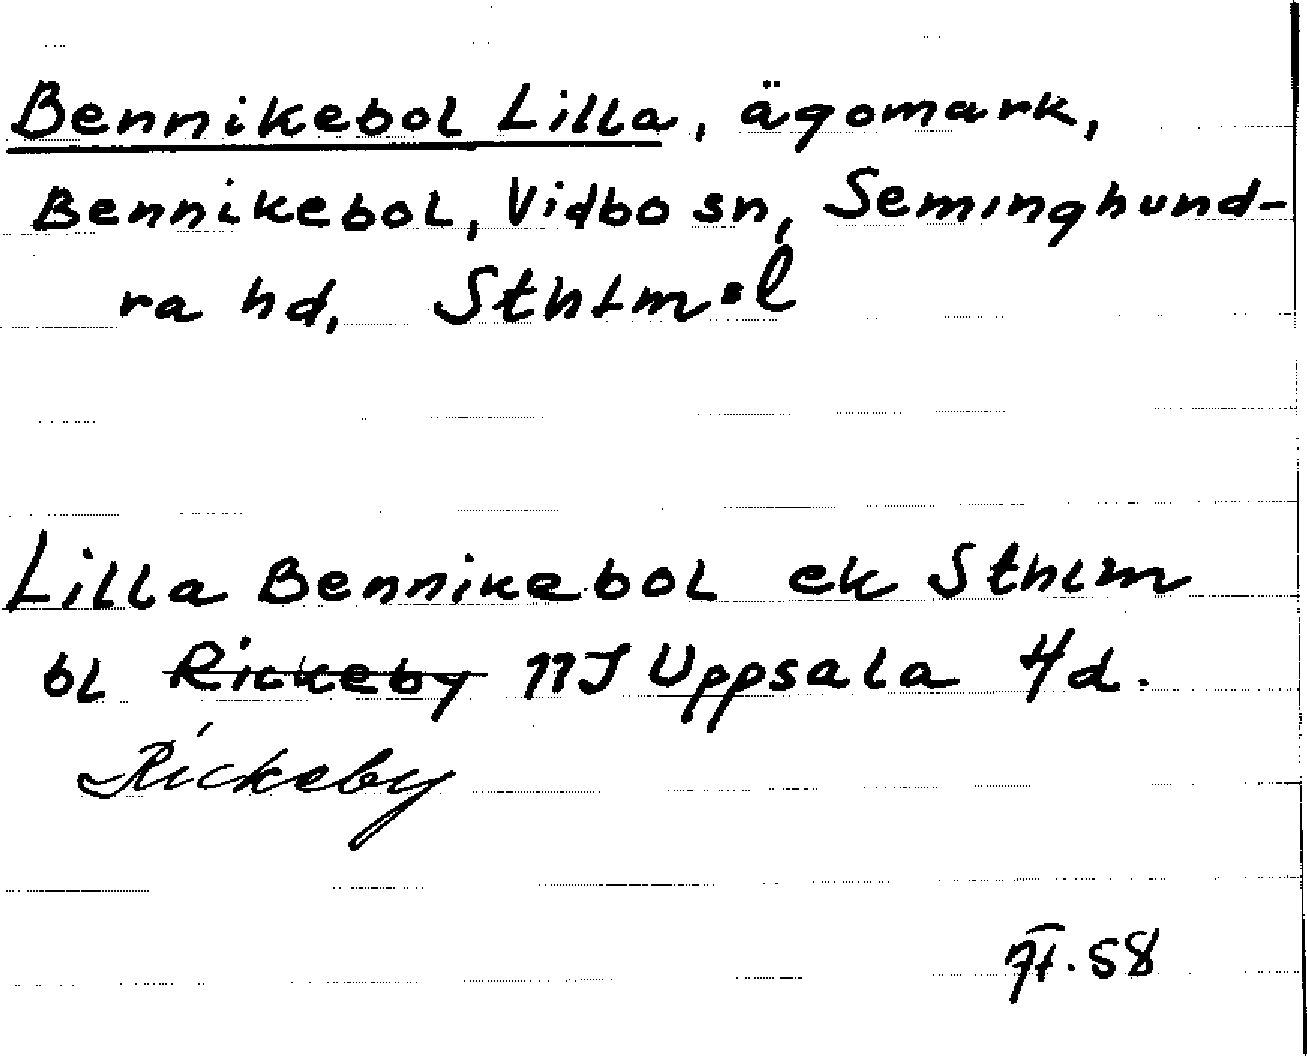 Bennikebol Lilla, ägomark,
Bennikebol, Vidbo sn, Seminghund-
ra hd, Sthlm.l
Lilla Bennikebol ek Sthlm
bl Rickeby 11J Uppsala 4d.
Rickeby
58